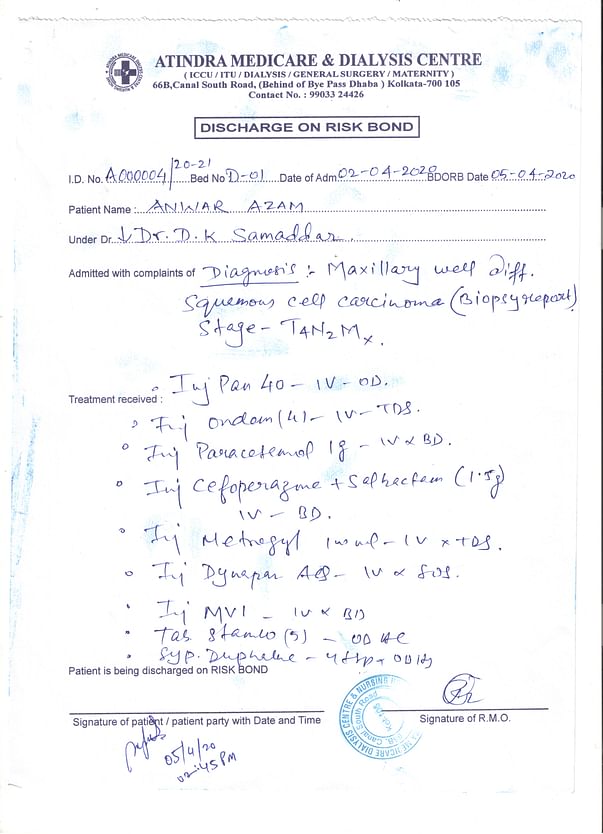 ATINDRA MEDICARE & DIALYSIS CENTRE
( ICCU / ITU / DIALYSIS / GENERAL SURGERY / MATERNITY )
66B,Canal South Road, (Behind of Bye Pass Dhaba ) Kolkata-700 105
Contact No. : 99033 24426
DISCHARGE ON RISK BOND
I.D. No. A000004/20-21 Bed No D-01 Date of Adm 02-04-2020 BDORB Date 05-04-2020
Patient Name : ANWAR AZAM
Under Dr. Dr. D. K Samaddar.
Admitted with complaints of Diagnosis :- Maxillary well diff.
Squemous cell carcinoma (Biopsy report)
Stage - T4N2Mx.
Inj Pan 40 - IV - OD.
Treatment received :
Inj Ondem (4) - IV - TDS.
Inj Paracetamol 1g - IV x BD.
Inj Cefoperazone + Salbactam (1.5g)
IV - BD.
Inj Metrogyl - IV x TDS.
Inj Dynapar AQ - IV x SOS.
Inj MVI - IV x BD
Tab. Stamlo (5) - OD
Syp. Duphalac -
Patient is being discharged on RISK BOND
Signature of patient / patient party with Date and Time
Signature of R.M.O.
05/4/20
02:45 PM